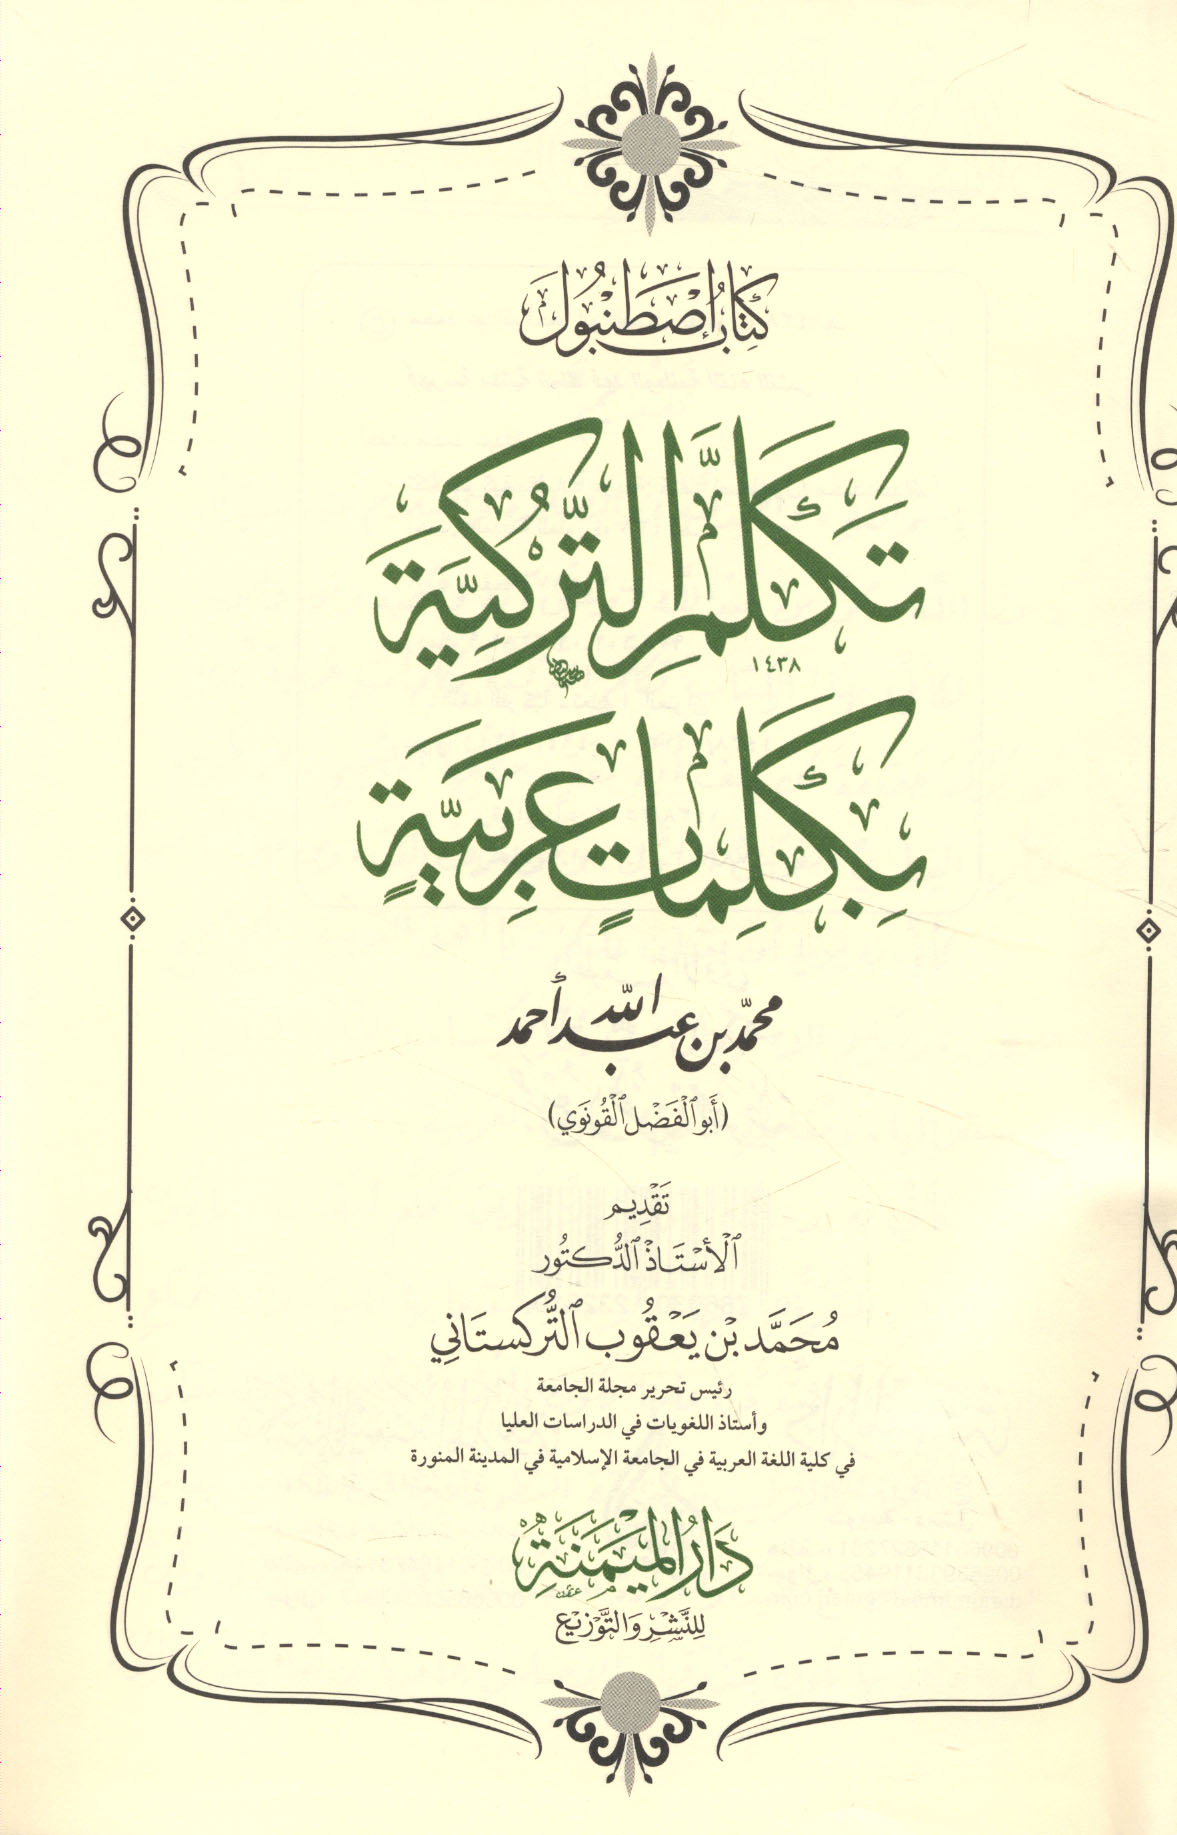 كِتَابُ إِصْطَنْبُولَ
تَكَلَّمِ التُّرْكِيَّةَ
١٤٣٨
بِكَلِمَاتٍ عَرَبِيَّةٍ
محمّد بن عبد اللّه أحمد
(أَبُو ٱلْفَضْل ٱلْقُونَوِي)
تَقْدِيم
ٱلْأُسْتَاذ ٱلدُّكتُور
مُحَمَّد بْن يَعْقُوب ٱلتُّركستَانِي
رئيس تحرير مجلة الجامعة
وأستاذ اللغويات في الدراسات العليا
في كلية اللغة العربية في الجامعة الإسلامية في المدينة المنورة
دَارُ المَيْمَنَةِ
لِلنَّشْرِ وَالتَّوْزِيْعِ